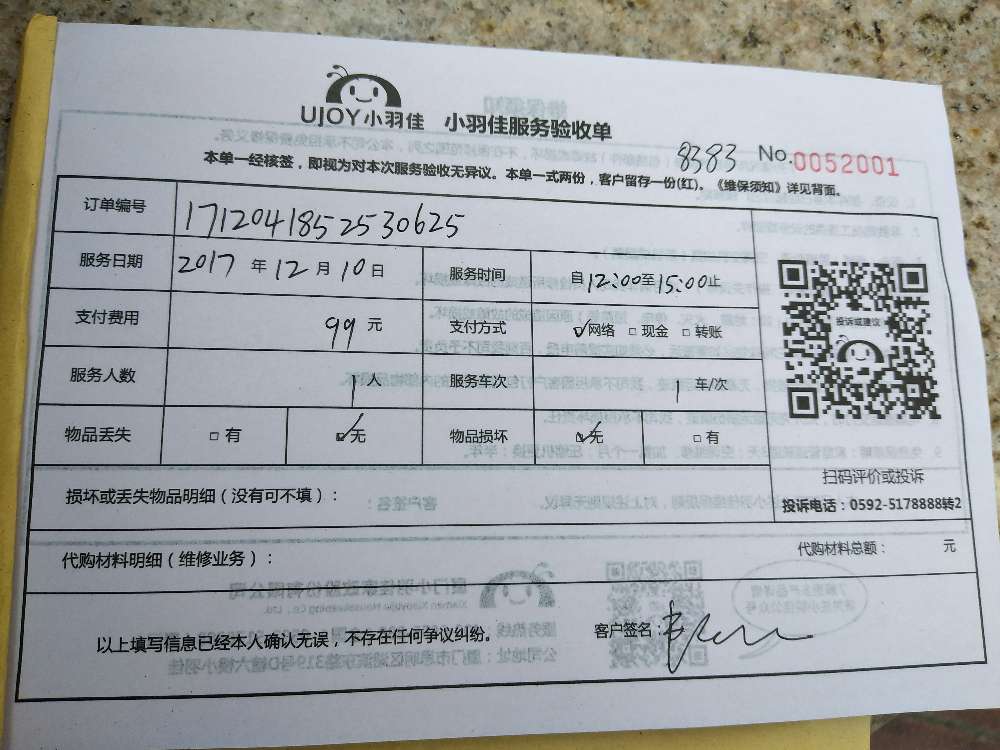 UJOY小羽佳 小羽佳服务验收单
8383 No.0052001
本单一经核签，即视为对本次服务验收无异议。本单一式两份，客户留存一份(红)。《维保须知》详见背面。
订单编号 1712041852530625
服务日期 2017 年 12 月 10 日 服务时间 自12:00至15:00止
支付费用 99 元 支付方式 ☑网络 □现金 □转账
服务人数 1 人 服务车次 1 车/次
物品丢失 □有 ☑无 物品损坏 ☑无 □有
投诉或建议
扫码评价或投诉
投诉电话：0592-5178888转2
损坏或丢失物品明细（没有可不填）：
代购材料明细（维修业务）： 代购材料总额： 元
以上填写信息已经本人确认无误，不存在任何争议纠纷。 客户签名：